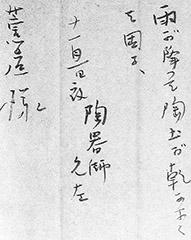 雨が降つて陶土が乾かなく
て困る、
十一月一日夜
陶器師
萱屋様